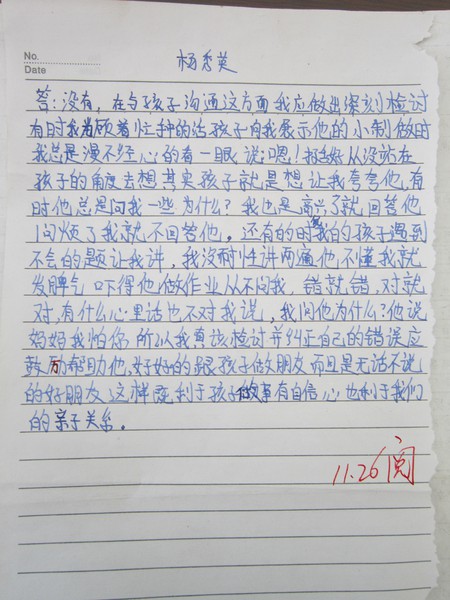 No.
Date
杨秀英
答:没有,在与孩子沟通这方面我应做出深刻检讨
有时我着顾着忙种的活孩子向我展示他的小制做时
我总是漫不经心的看一眼,说:嗯!挺好从没站在
孩子的角度去想其实孩子就是想让我夸夸他,有
时他总是问我一些为什么?我也是高兴了就回答他
问烦了我就不回答他。还有的时我的孩子遇到
不会的题让我讲,我没耐心讲两遍他不懂我就
发脾气吓得他做作业从不问我,错就错,对就
对,有什么心里话也不对我说,我问他为什么?他说
妈妈我怕你,所以我真该检讨并纠正自己的错误应
鼓励帮助他,好好的跟孩子做朋友而且是无话不说
的好朋友,这样既利于孩子做事有自信心也利于我们
的亲子关系。
11.26阅